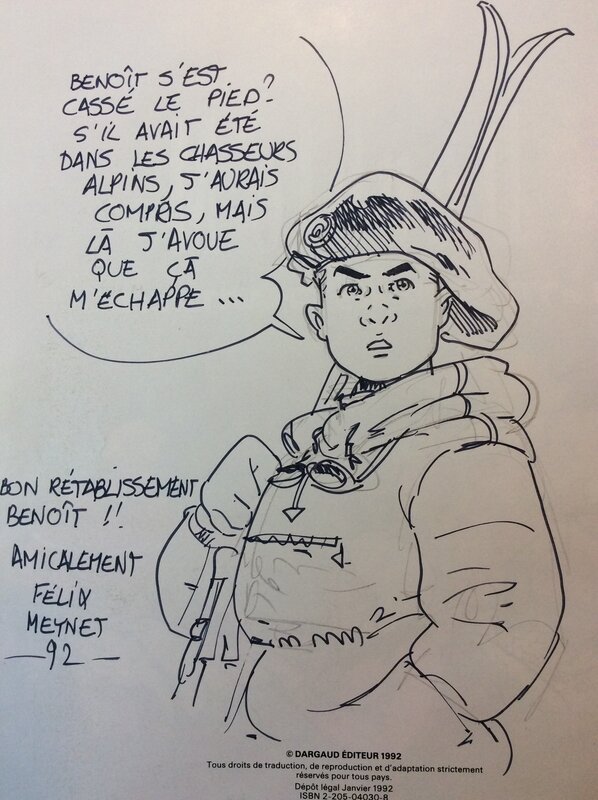 BENOÎT S'EST
CASSÉ LE PIED?
S'IL AVAIT ÉTÉ
DANS LES CHASSEURS
ALPINS, J'AURAIS
COMPRIS, MAIS
LÀ J'AVOUE
QUE ÇÀ
M'ÉCHAPPE ...
BON RÉTABLISSEMENT
BENOÎT !!
AMICALEMENT
FÉLIX
MEYNET
— 92 —
© DARGAUD ÉDITEUR 1992
Tous droits de traduction, de reproduction et d'adaptation strictement
réservés pour tous pays.
Dépôt légal Janvier 1992
ISBN 2-205-04030-8